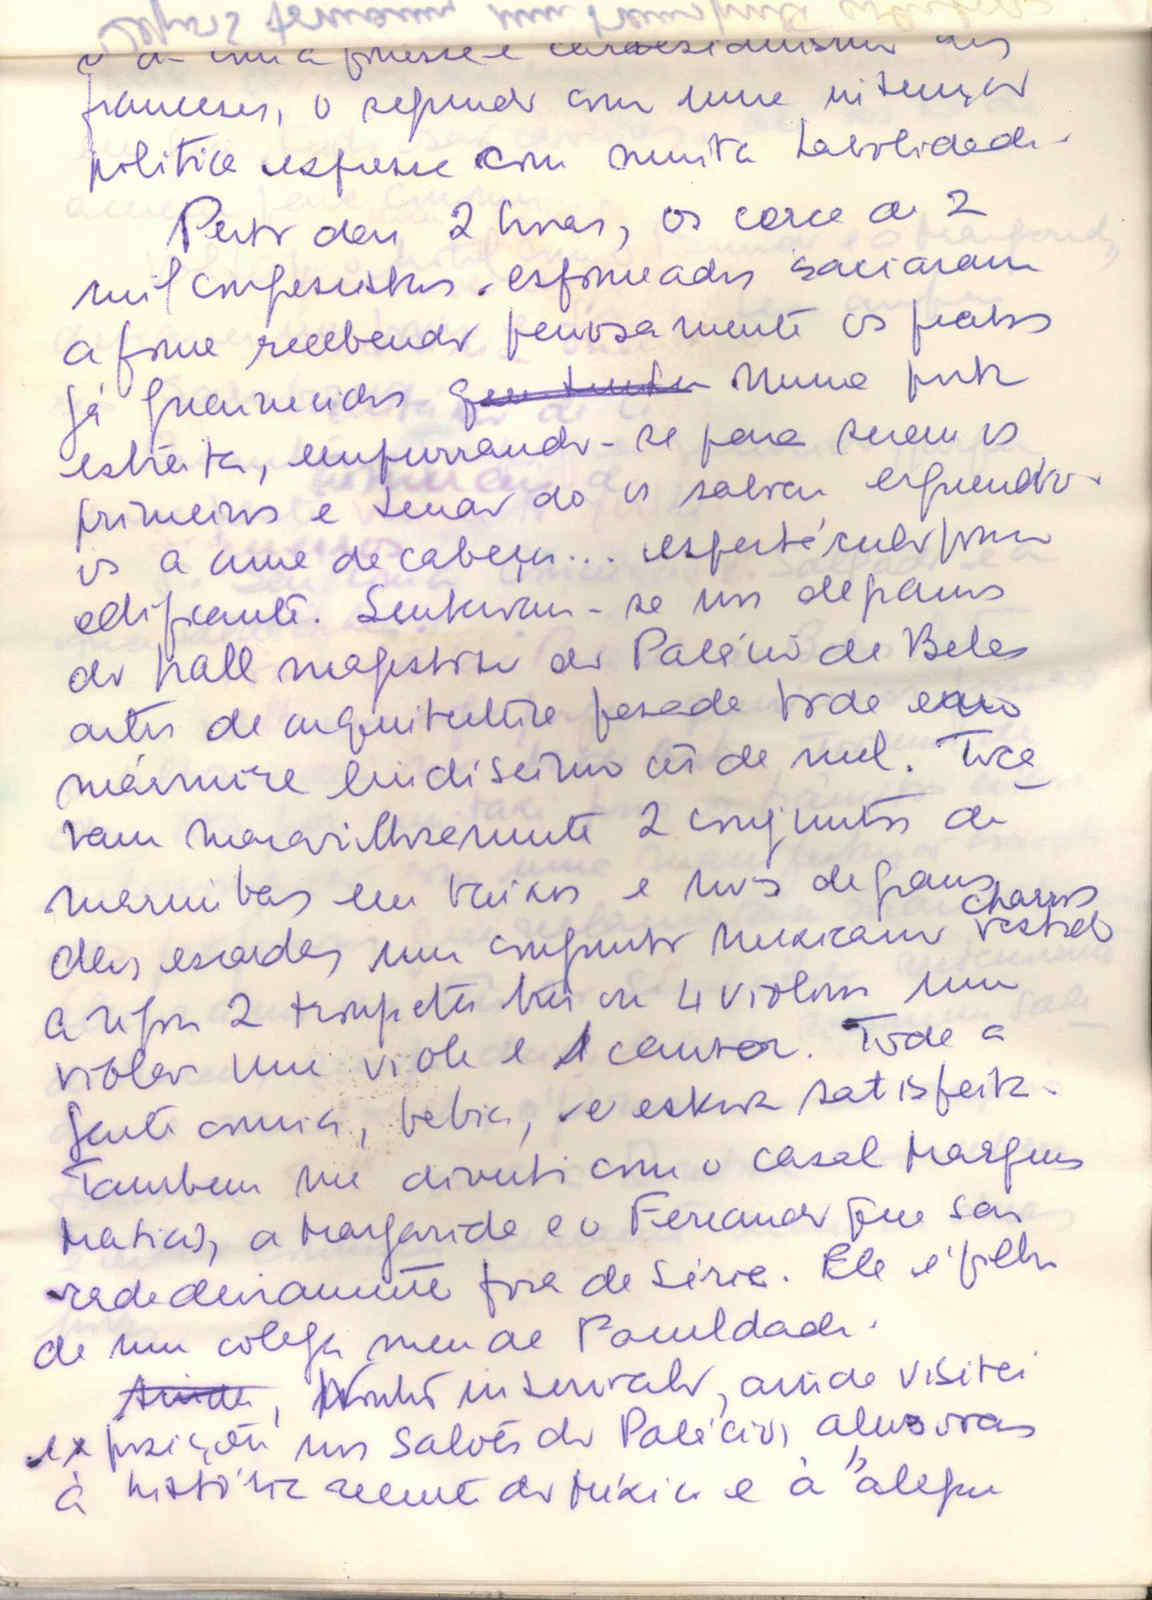 finesse e cartesianismo dos
franceses, o segundo com uma intenção
politica expressa com muita habilidade.
Perto das 2 horas, os cerca de 2
mil congressistas esfomeados saciaram
a fome recebendo penosamente os pratos
já guarnecidos numa porta
estreita, empurrando-se para serem os
primeiros e tenando os salvar erguendo-
os a cima de cabeça... espectáculo pouco
edificante. Sentavam-se nos degraus
do hall magestoso do Palácio de Belas
artes de arquitectura pesada toda em
mármore lindissimo côr de mel. Toca
vam maravilhosamente 2 conjuntos de
marimbas em baixo e nos degraus
das escadas um conjunto mexicano charros vestido
a rigor 2 trompetes três ou 4 violons um
violão uma viola e 1 cantor. Toda a
gente comia, bebia, e estava satisfeita.
Tambem me diverti com o casal Marques
Matias, a Margarida e o Fernando que são
verdadeiramente fora de série. Ele é filho
de um colega meu de Faculdade.
Ainda, Neste intervalo, ainda visitei
exposição nos Salões do Palácio, alusivas
à história recente do México e à "alegre